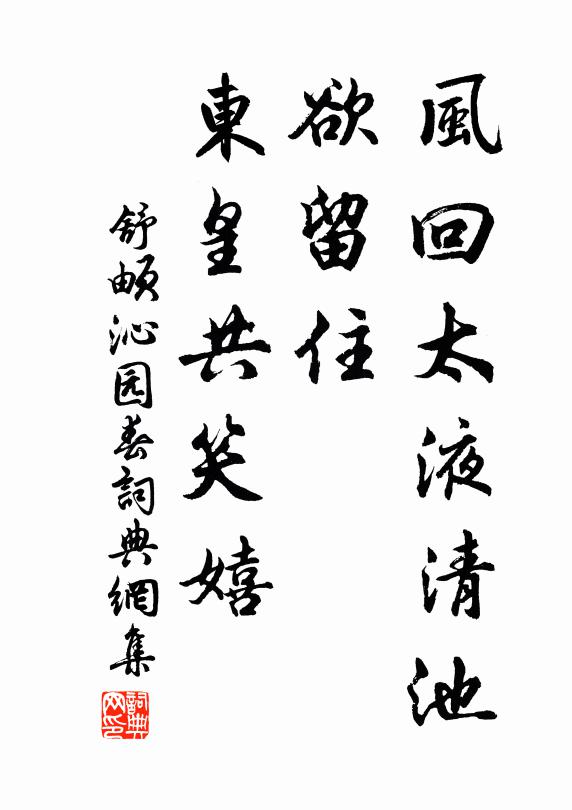 風回太液清池
欲留住
東皇共笑嬉
舒頔沁园春詞典網集
詞典网印